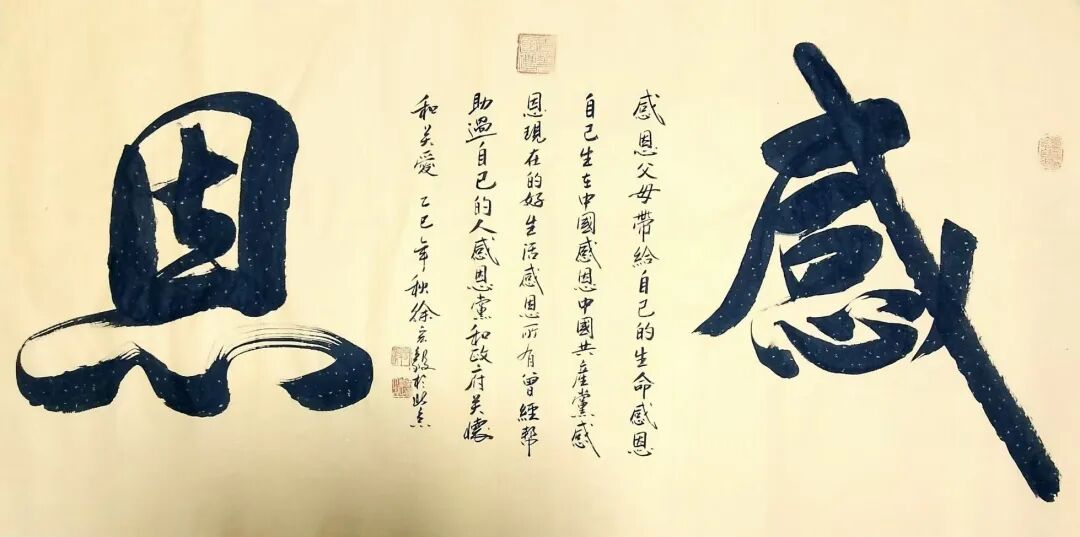 感
感恩父母帶給自己的生命感恩
自己生在中國感恩中國共產黨感
恩現在的好生活感恩所有曾經帮
助過自己的人感恩黨和政府关懷
和关愛 乙巳年秋徐宏毅於北京
恩